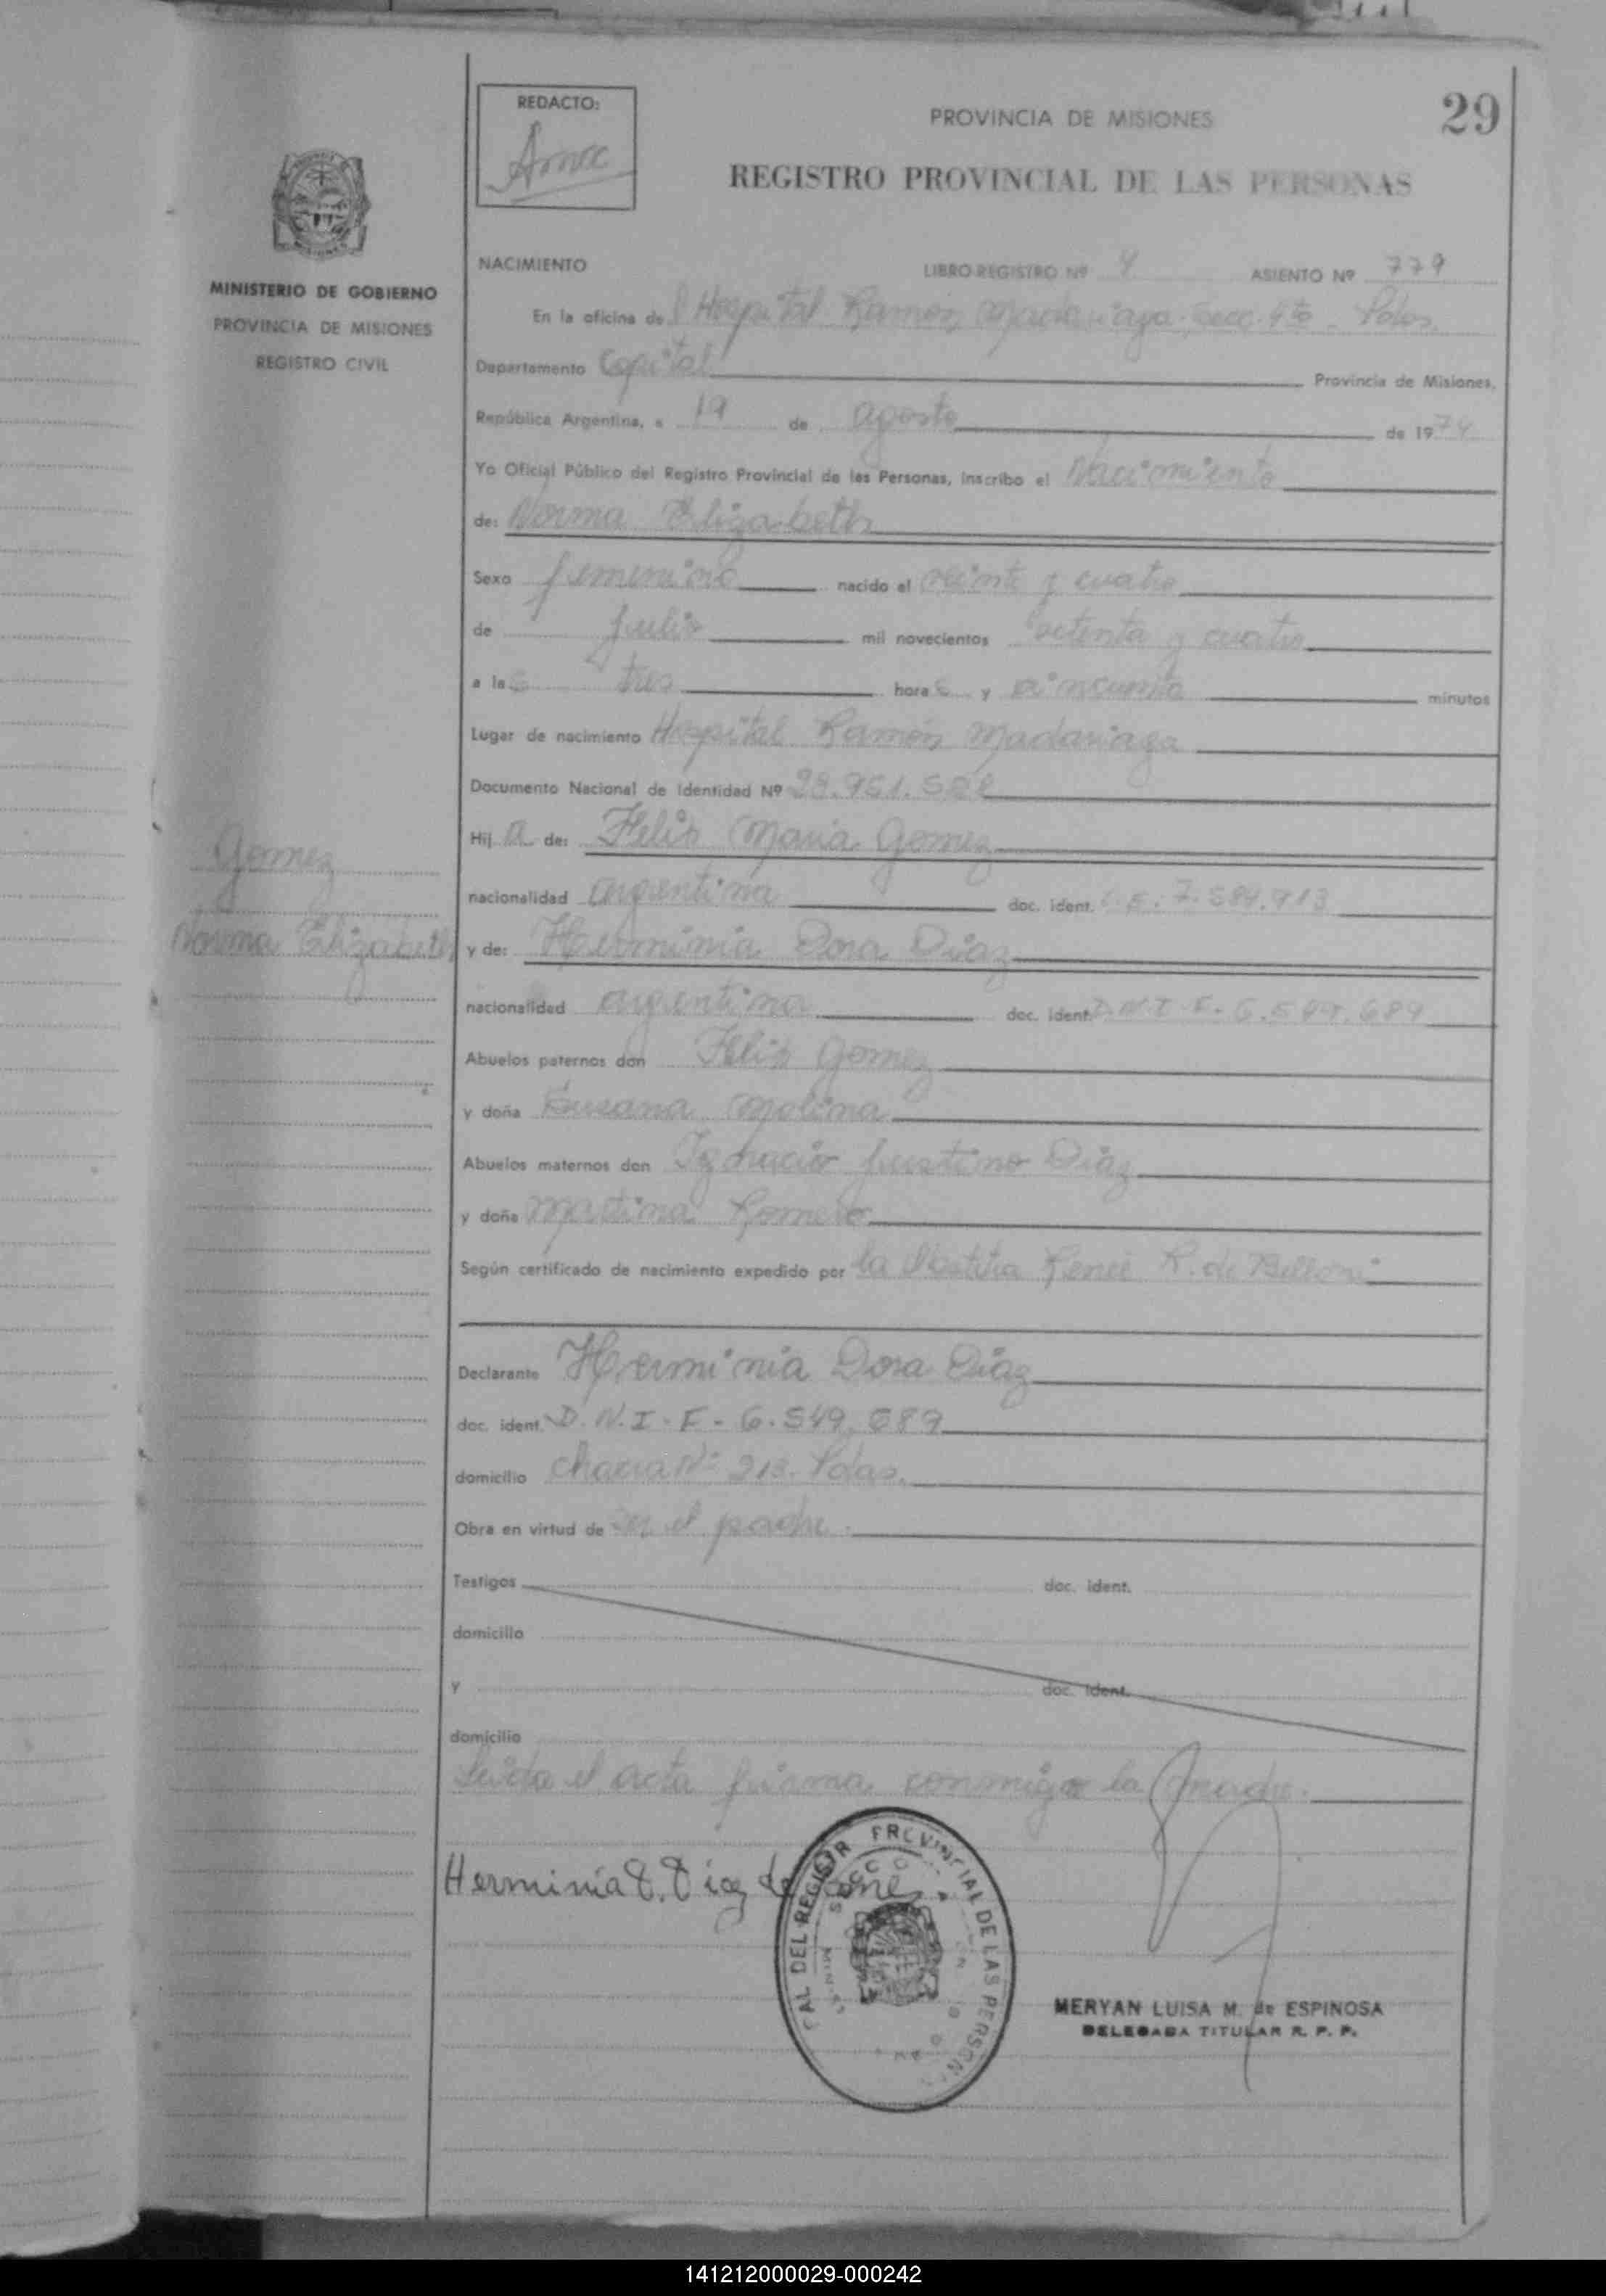 REDACTO:
PROVINCIA DE MISIONES
29
REGISTRO PROVINCIAL DE LAS PERSONAS
MINISTERIO DE GOBIERNO
PROVINCIA DE MISIONES
REGISTRO CIVIL
NACIMIENTO LIBRO REGISTRO Nº ASIENTO Nº 779
En la oficina del Hospital Ramón Madariaga Secc. 4ta
Departamento Capital Provincia de Misiones,
República Argentina, a 19 de agosto de 1974
Yo Oficial Público del Registro Provincial de las Personas, inscribo el Nacimiento
de: Norma Elizabeth
Sexo femenino nacido el veinte y cuatro
de julio mil novecientos setenta y cuatro
a las tres horas y cincuenta minutos
Lugar de nacimiento Hospital Ramón Madariaga
Documento Nacional de Identidad Nº
Hij a de: Felix Maria Gomez
Gomez
nacionalidad argentina doc. ident.
Norma Elizabeth
y de: Herminia Dora Diaz
nacionalidad argentina doc. ident. D.N.I.F.
Abuelos paternos don Felix Gomez
y doña Susana Molina
Abuelos maternos don Ignacio Justino Diaz
y doña Martina Romero
Según certificado de nacimiento expedido por la Renée R. de
Declarante Herminia Dora Diaz
doc. ident. D.N.I.F-6.549.689
domicilio chacra Nº 213. Pdas.
Obra en virtud de ser el padre.
Testigos doc. ident.
domicilio
y doc. ident.
domicilio
Leida el acta firma conmigo la madre.
Herminia D. Diaz de
DEL REGISTR PROVINCIAL DE LAS PERSON
MERYAN LUISA M. de ESPINOSA
DELEGADA TITULAR R. P. P.
141212000029-000242